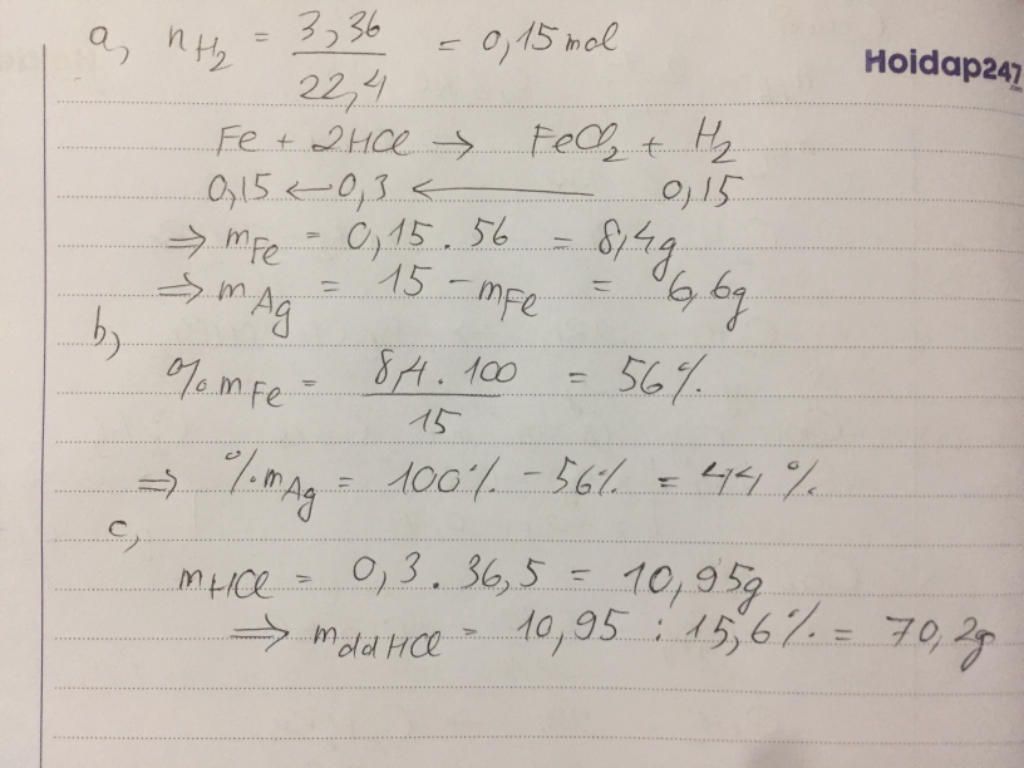 a, nH₂ = 3,36 / 22,4 = 0,15 mol
Hoidap247.com
Fe + 2HCl → FeCl₂ + H₂
0,15 ← 0,3 ← 0,15
⇒ mFe = 0,15 . 56 = 8,4g
⇒ mAg = 15 - mFe = 6,6g
b,
%mFe = 8,4 . 100 / 15 = 56%
⇒ %mAg = 100% - 56% = 44%
c,
mHCl = 0,3 . 36,5 = 10,95g
⇒ mddHCl = 10,95 : 15,6% = 70,2g